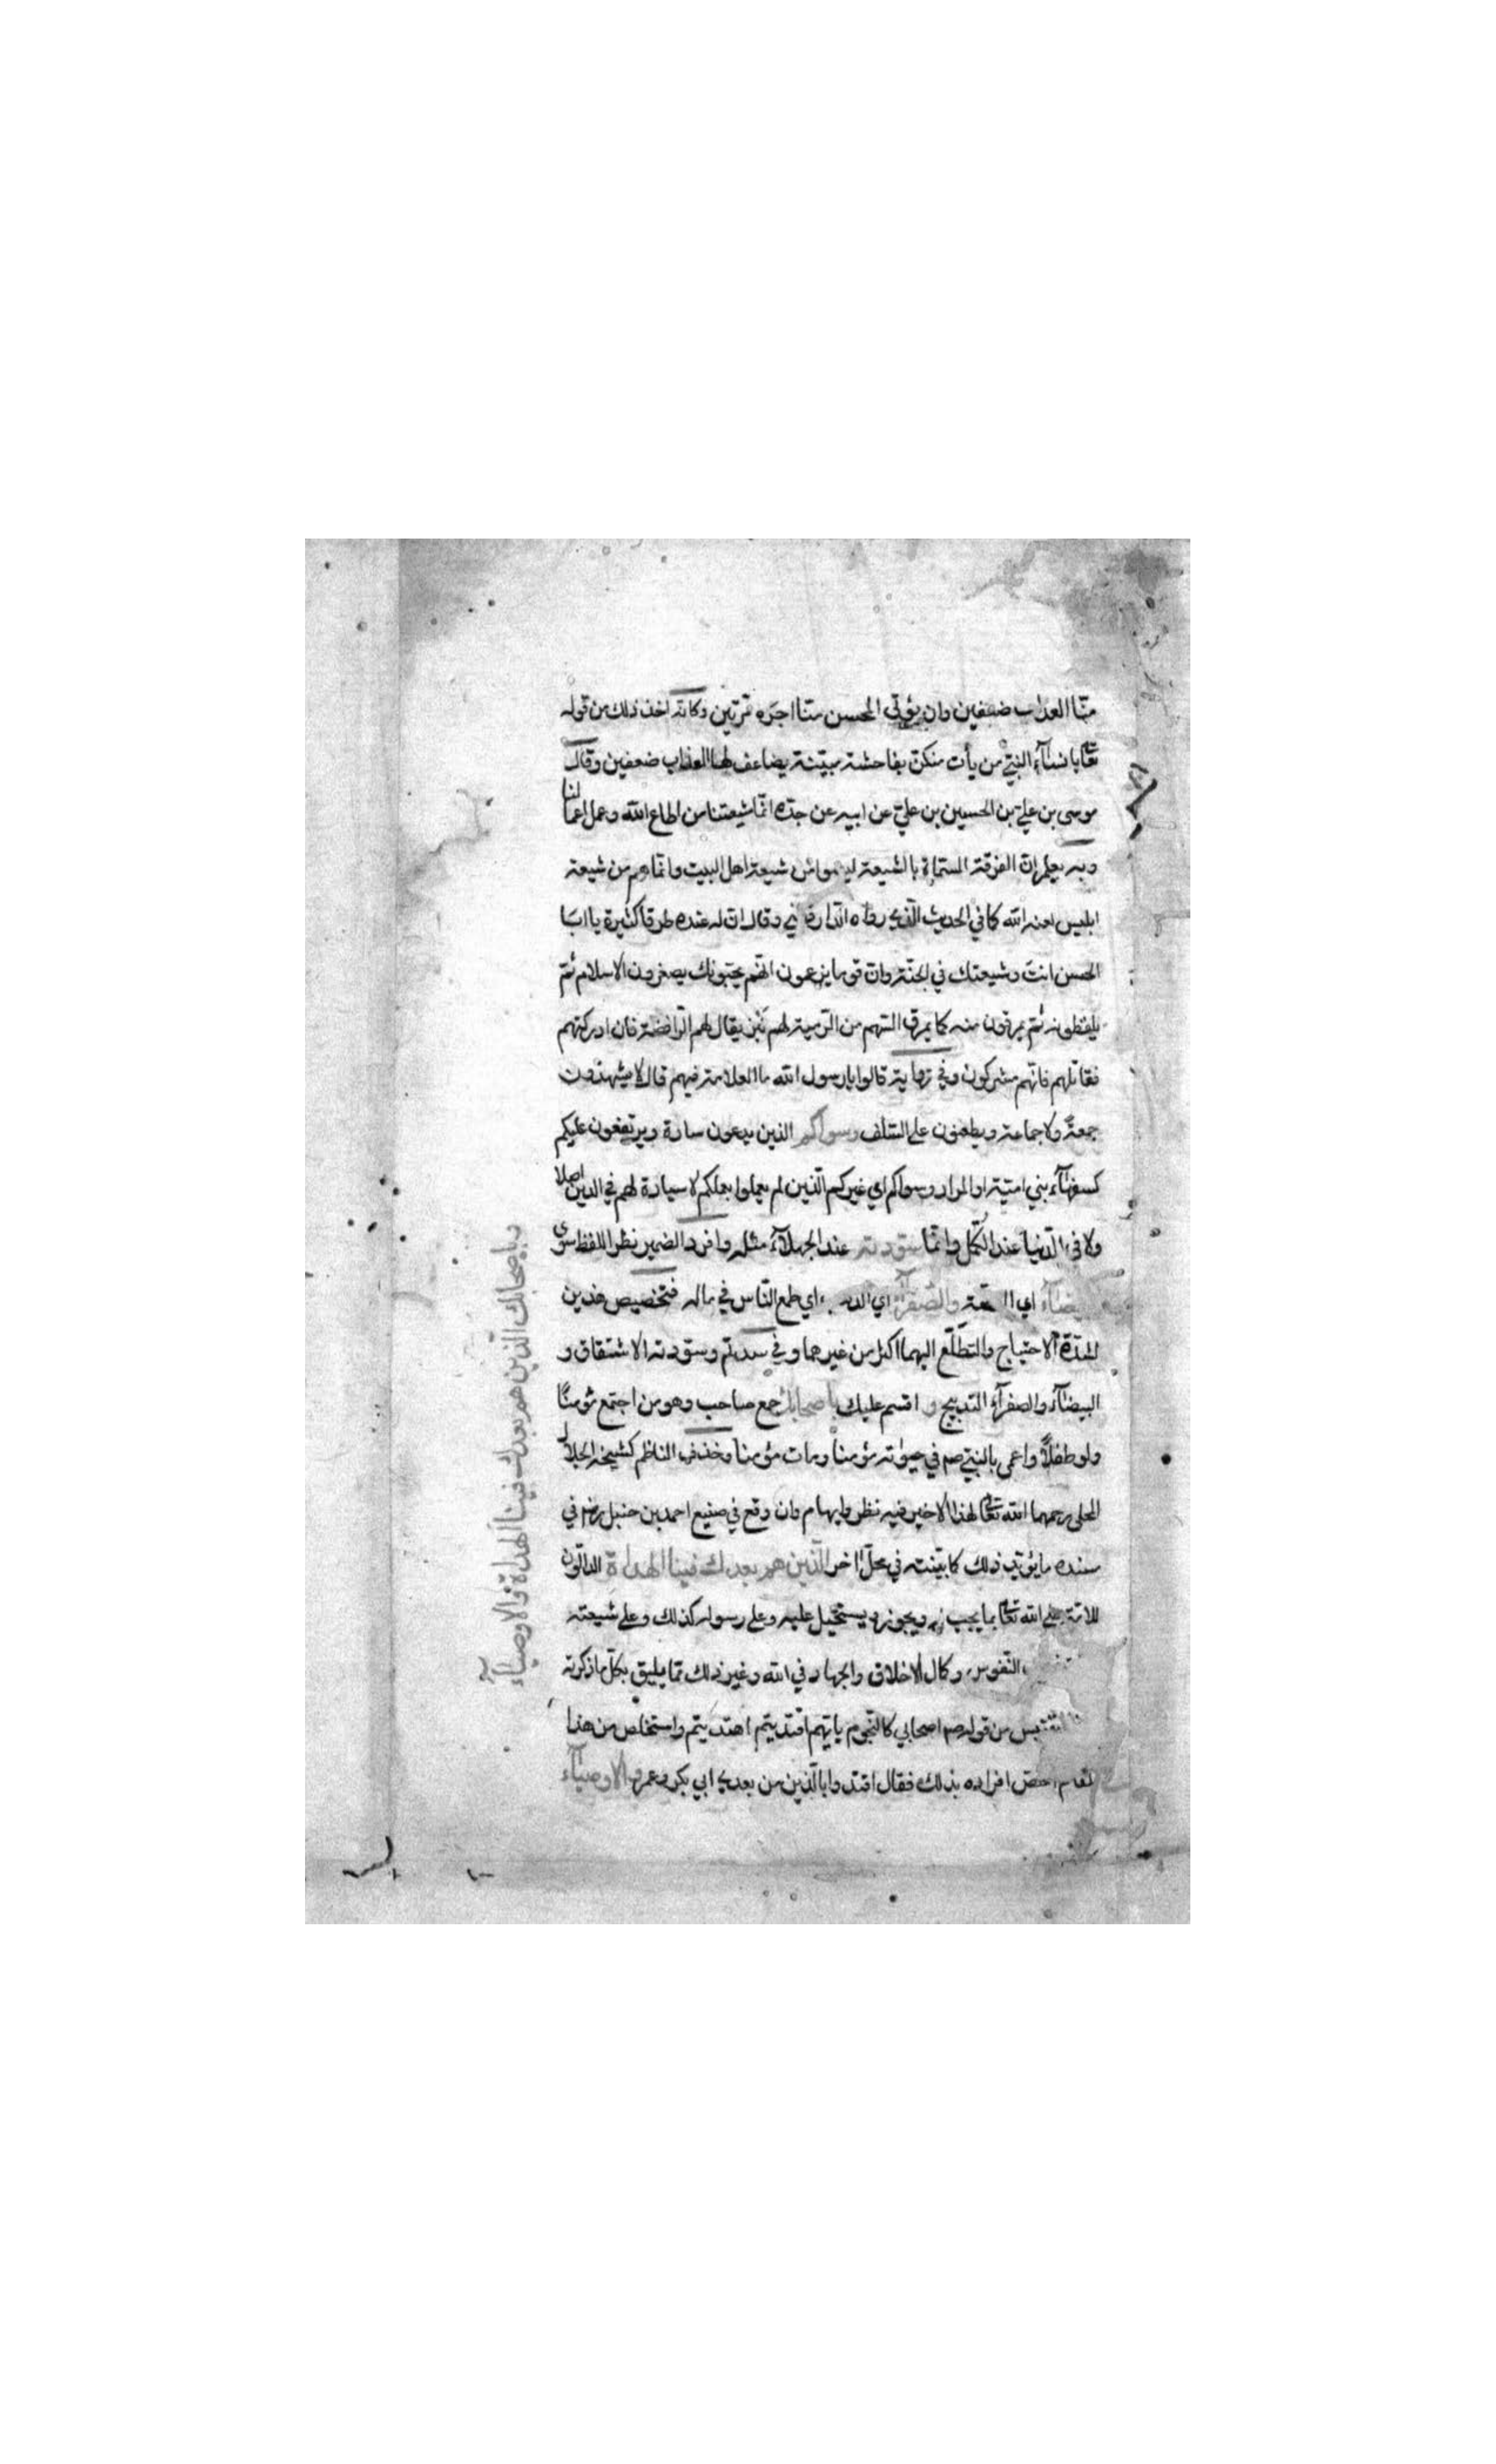 منّا العذاب ضعفين وان يؤتى المحسن منّا اجره مرّتين وكانّه اخذ ذلك من قوله
تعا يا نسآء النبيّ من يأت منكنّ بفاحشة مبيّنة يضاعف لها العذاب ضعفين وقال
موسى بن عليّ بن الحسين بن عليّ عن ابيه عن جدّه انّما شيعتنا من اطاع الله وعمل اعمالنا
وبه يعلم انّ الفرقة المسمّاة بالشيعة ليسوا من شيعة اهل البيت وانّما هم من شيعة
ابليس لعنه الله كما في الحديث الّذي رواه الدّارقطني وقال انّ له عنده طرقا كثيرة يا ابا
الحسن انت وشيعتك في الجنّة وانّ قوما يزعمون انّهم يحبّونك يصغرون الاسلام ثمّ
يلفظونه ثمّ يمرقون منه كما يمرق السّهم من الرّمية لهم نبز يقال لهم الرّافضة فان ادركتهم
فقاتلهم فانّهم مشركون وفي رواية قالوا يا رسول الله ما العلامة فيهم قال لا يشهدون
جمعة ولا جماعة ويطعنون على السّلف وسواكم الذين يدعون سادة ويرتفعون عليكم
كسفهآء بني اميّة او المراد وسواكم اي غيركم الّذين لم يعملوا بعملكم لا سيادة لهم في الدين اصلا
ولا في الدّنيا عند الكمّل وانّما سوّدته عند الجهلآء مثله وافرد الضمير نظرا للفظ سوى
البيضآء اي الفضّة والصّفرآء اي الذهب اي طمع النّاس في ماله فتخصيص هذين
لشدّة الاحتياج والتطلّع اليهما اكثر من غيرهما وفي سدتم وسوّدته الاشتقاق و
البيضآء والصفرآء التدبيج و اقسم عليك باصحابك جمع صاحب وهو من اجتمع مؤمنًا
ولو طفلاً واعمى بالنبيّ صم في حيوته مؤمنا ومات مؤمنا وحذف الناظم كشيخه الجلال
المحلى رحمهما الله تعا لهذا الاخير فيه نظر وايهام وان وقع في صنيع احمد بن حنبل رضه في
مسنده ما يؤيّد ذلك كما بيّنته في محلّ اخر الّذين هم بعدك فينا الهداة الدالّون
للامّة على الله تعا بما يجب له ويجوز ويستحيل عليه وعلى رسوله كذلك وعلى شيعته
النّفوس وكمال الاخلاق والجهاد في الله وغير ذلك ممّا يليق بكلّ ما ذكرته
مقتبس من قوله صم اصحابي كالنّجوم بايّهم اقتديتم اهتديتم واستخلص من هذا
المقام اخصّ افراده بذلك فقال اقتدوا بالّذين من بعدي ابي بكر وعمر والاوصيآء
وباصحابك الّذين هم بعدك فينا الهداة والاوصيآء